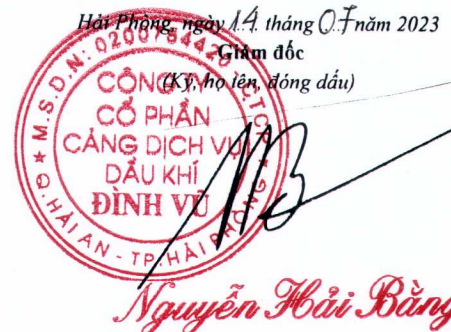 Hải Phòng, ngày 14 tháng 07 năm 2023
Giám đốc
(Ký, họ tên, đóng dấu)
M.S.D.N: 0200784420 C.T.C.P
CÔNG
CỔ PHẦN
CẢNG DỊCH VỤ
DẦU KHÍ
ĐÌNH VŨ
Q. HẢI AN - TP. HẢI PHÒNG
Nguyễn Hải Bằng